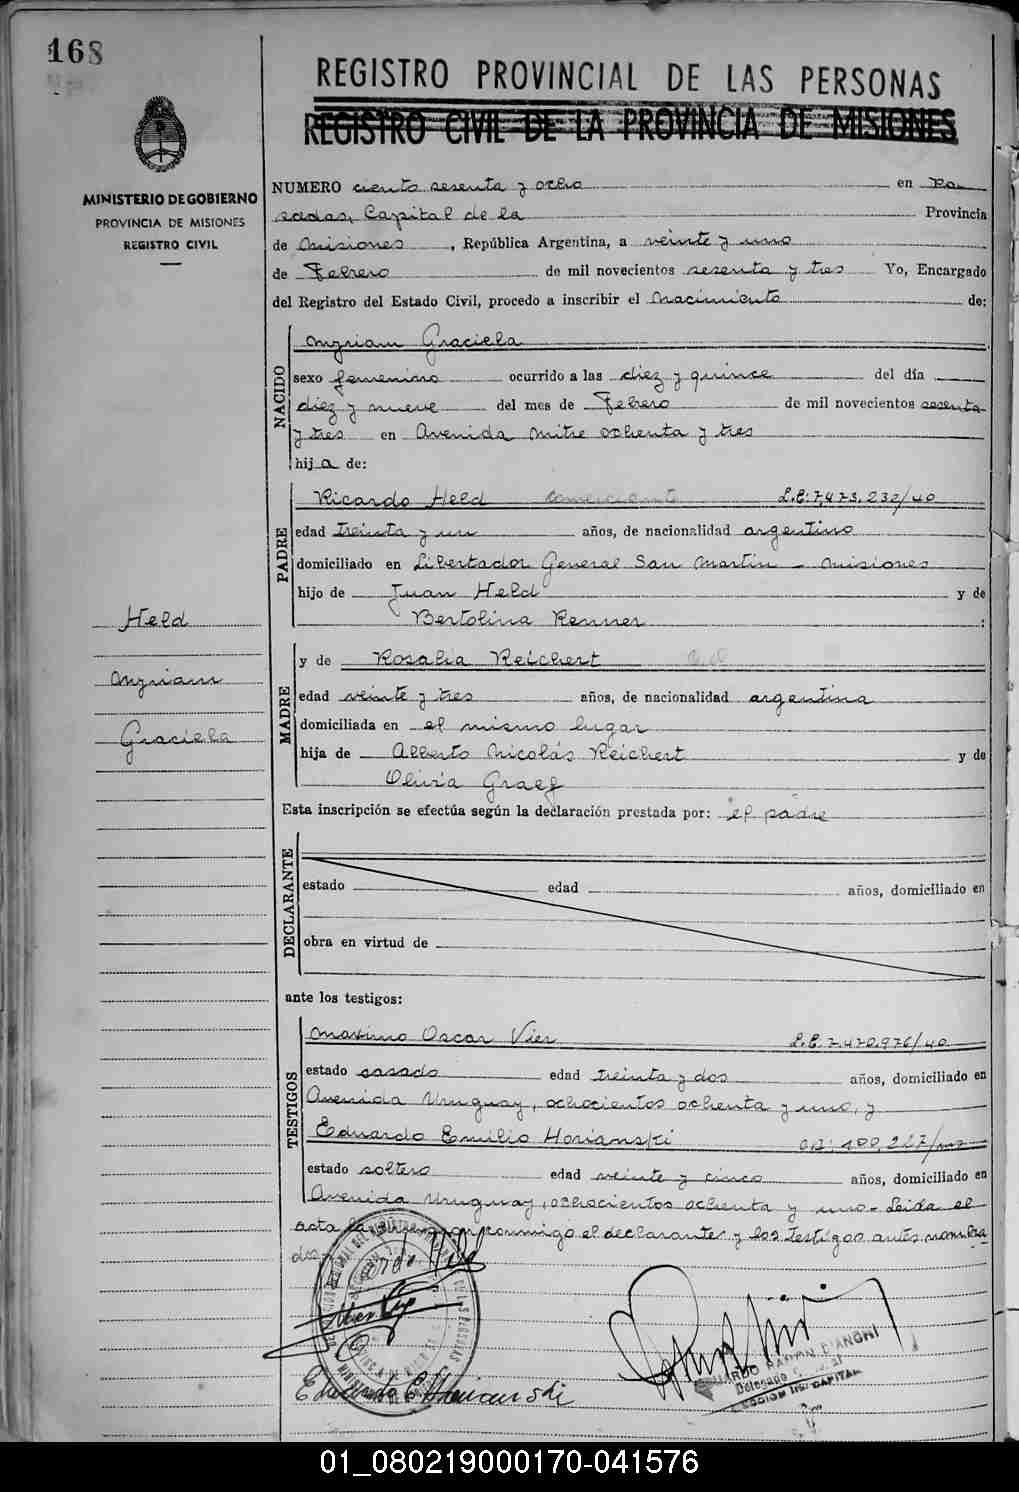 168
REGISTRO PROVINCIAL DE LAS PERSONAS
REGISTRO CIVIL DE LA PROVINCIA DE MISIONES
MINISTERIO DE GOBIERNO
PROVINCIA DE MISIONES
REGISTRO CIVIL
NUMERO ciento sesenta y ocho en Po
sadas, Capital de la Provincia
de Misiones, República Argentina, a veinte y uno
de Febrero de mil novecientos sesenta y tres Yo, Encargado
del Registro del Estado Civil, procedo a inscribir el Nacimiento de:
NACIDO
Myriam Graciela
sexo femenino ocurrido a las diez y quince del día
diez y nueve del mes de Febrero de mil novecientos sesenta
y tres en Avenida Mitre ochenta y tres
hija de:
PADRE
Ricardo Held comerciante L.E: 7,473.232/40
edad treinta y un años, de nacionalidad argentino
domiciliado en Libertador General San Martin - Misiones
hijo de Juan Held y de
Bertolina Renner :
Held
Myriam
Graciela
MADRE
y de Rosalia Reichert
edad veinte y tres años, de nacionalidad argentina
domiciliada en el mismo lugar
hija de Alberto Nicolás Reichert y de
Olivia Graef
Esta inscripción se efectúa según la declaración prestada por: el padre
DECLARANTE
estado edad años, domiciliado en
obra en virtud de
ante los testigos:
TESTIGOS
Maximo Oscar Vier L.E. 7.470.976/40
estado casado edad treinta y dos años, domiciliado en
Avenida Uruguay, ochocientos ochenta y uno, y
Eduardo Emilio Horianski
estado soltero edad veinte y cinco años, domiciliado en
Avenida Uruguay, ochocientos ochenta y uno - Leida el
acta la firman conmigo el declarante y los testigos antes nombra
dos
Delegado
SECCION 1ra. CAPITAL
01_080219000170-041576